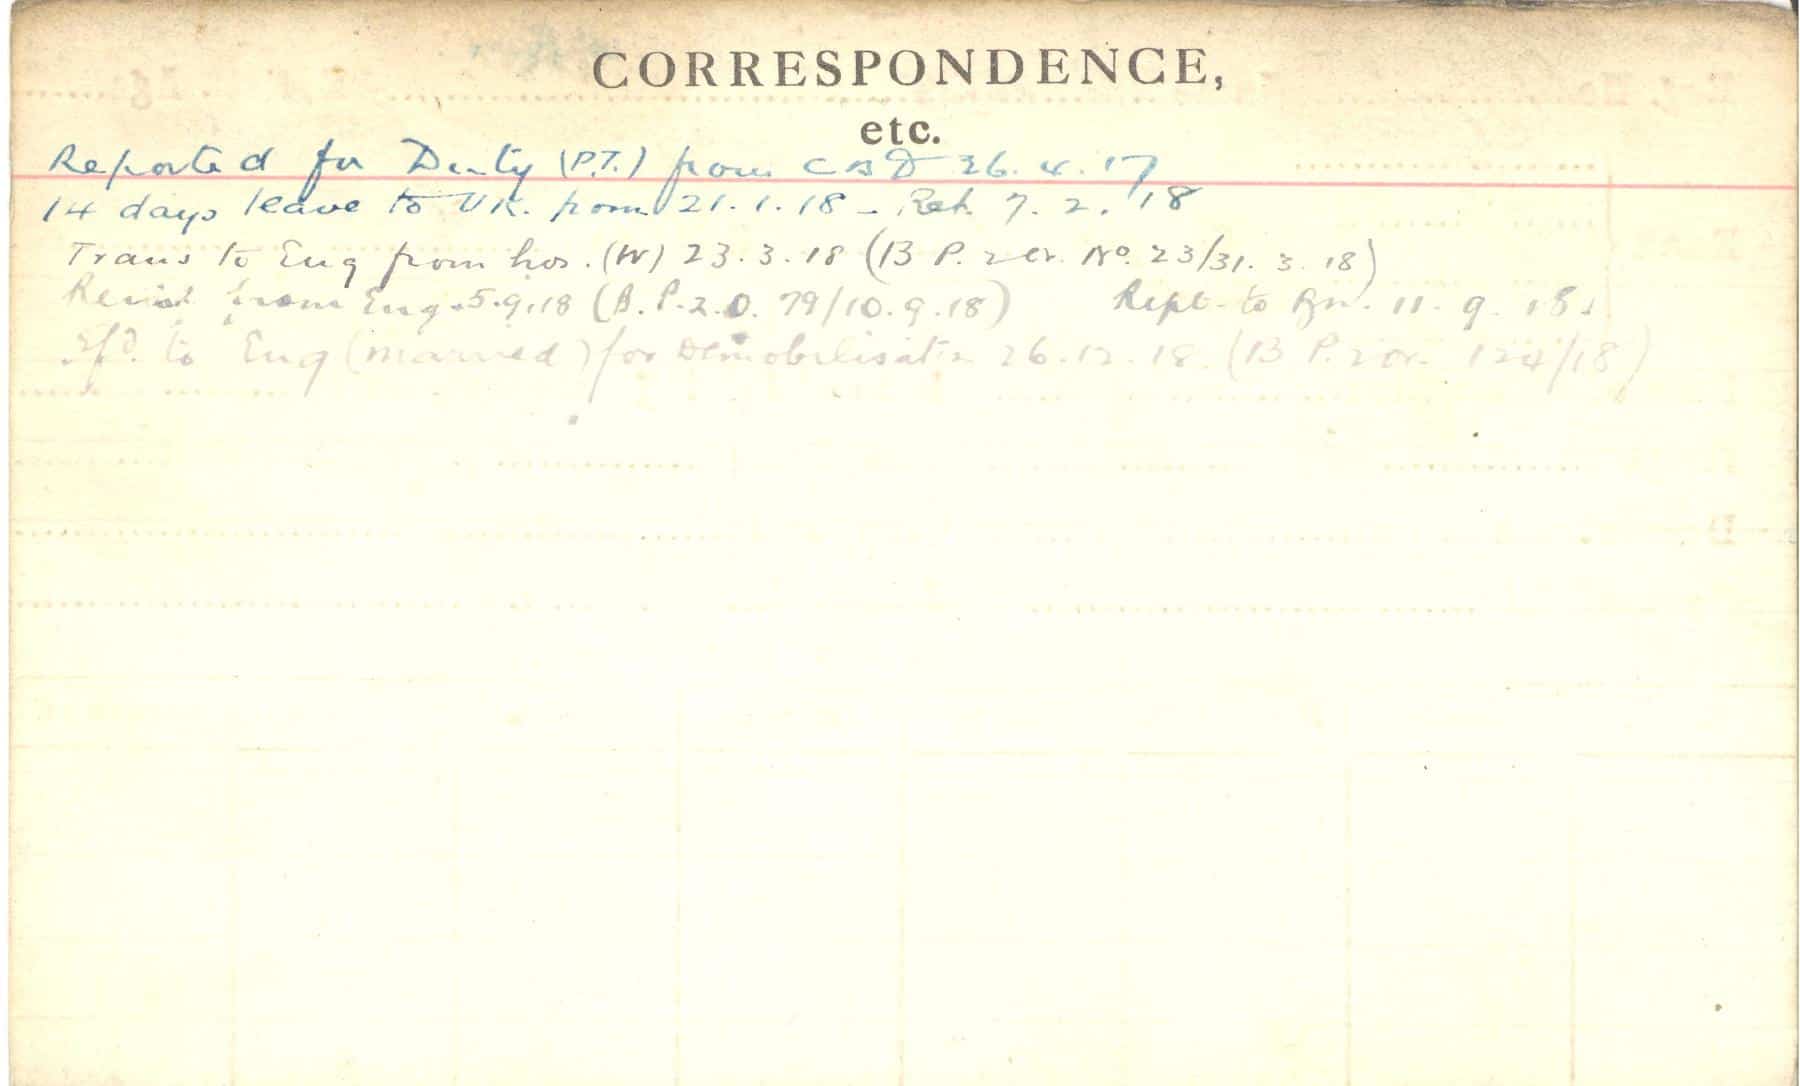 CORRESPONDENCE,
etc.
Reported for Duty (P.T.) from CBD 26.4.17
14 days leave to U.K. from 21.1.18 - Ret. 7.2.18
Trans to Eng from hos. (W) 23.3.18 (B P. 2 No. 23/31.3.18)
from Eng. 5.9.18 (B.P.2.O. 79/10.9.18) Rept. to Bn. 11.9.18.
to Eng (married) for Demobilisatn 26.12.18. (B P. 2 or. 124/18)